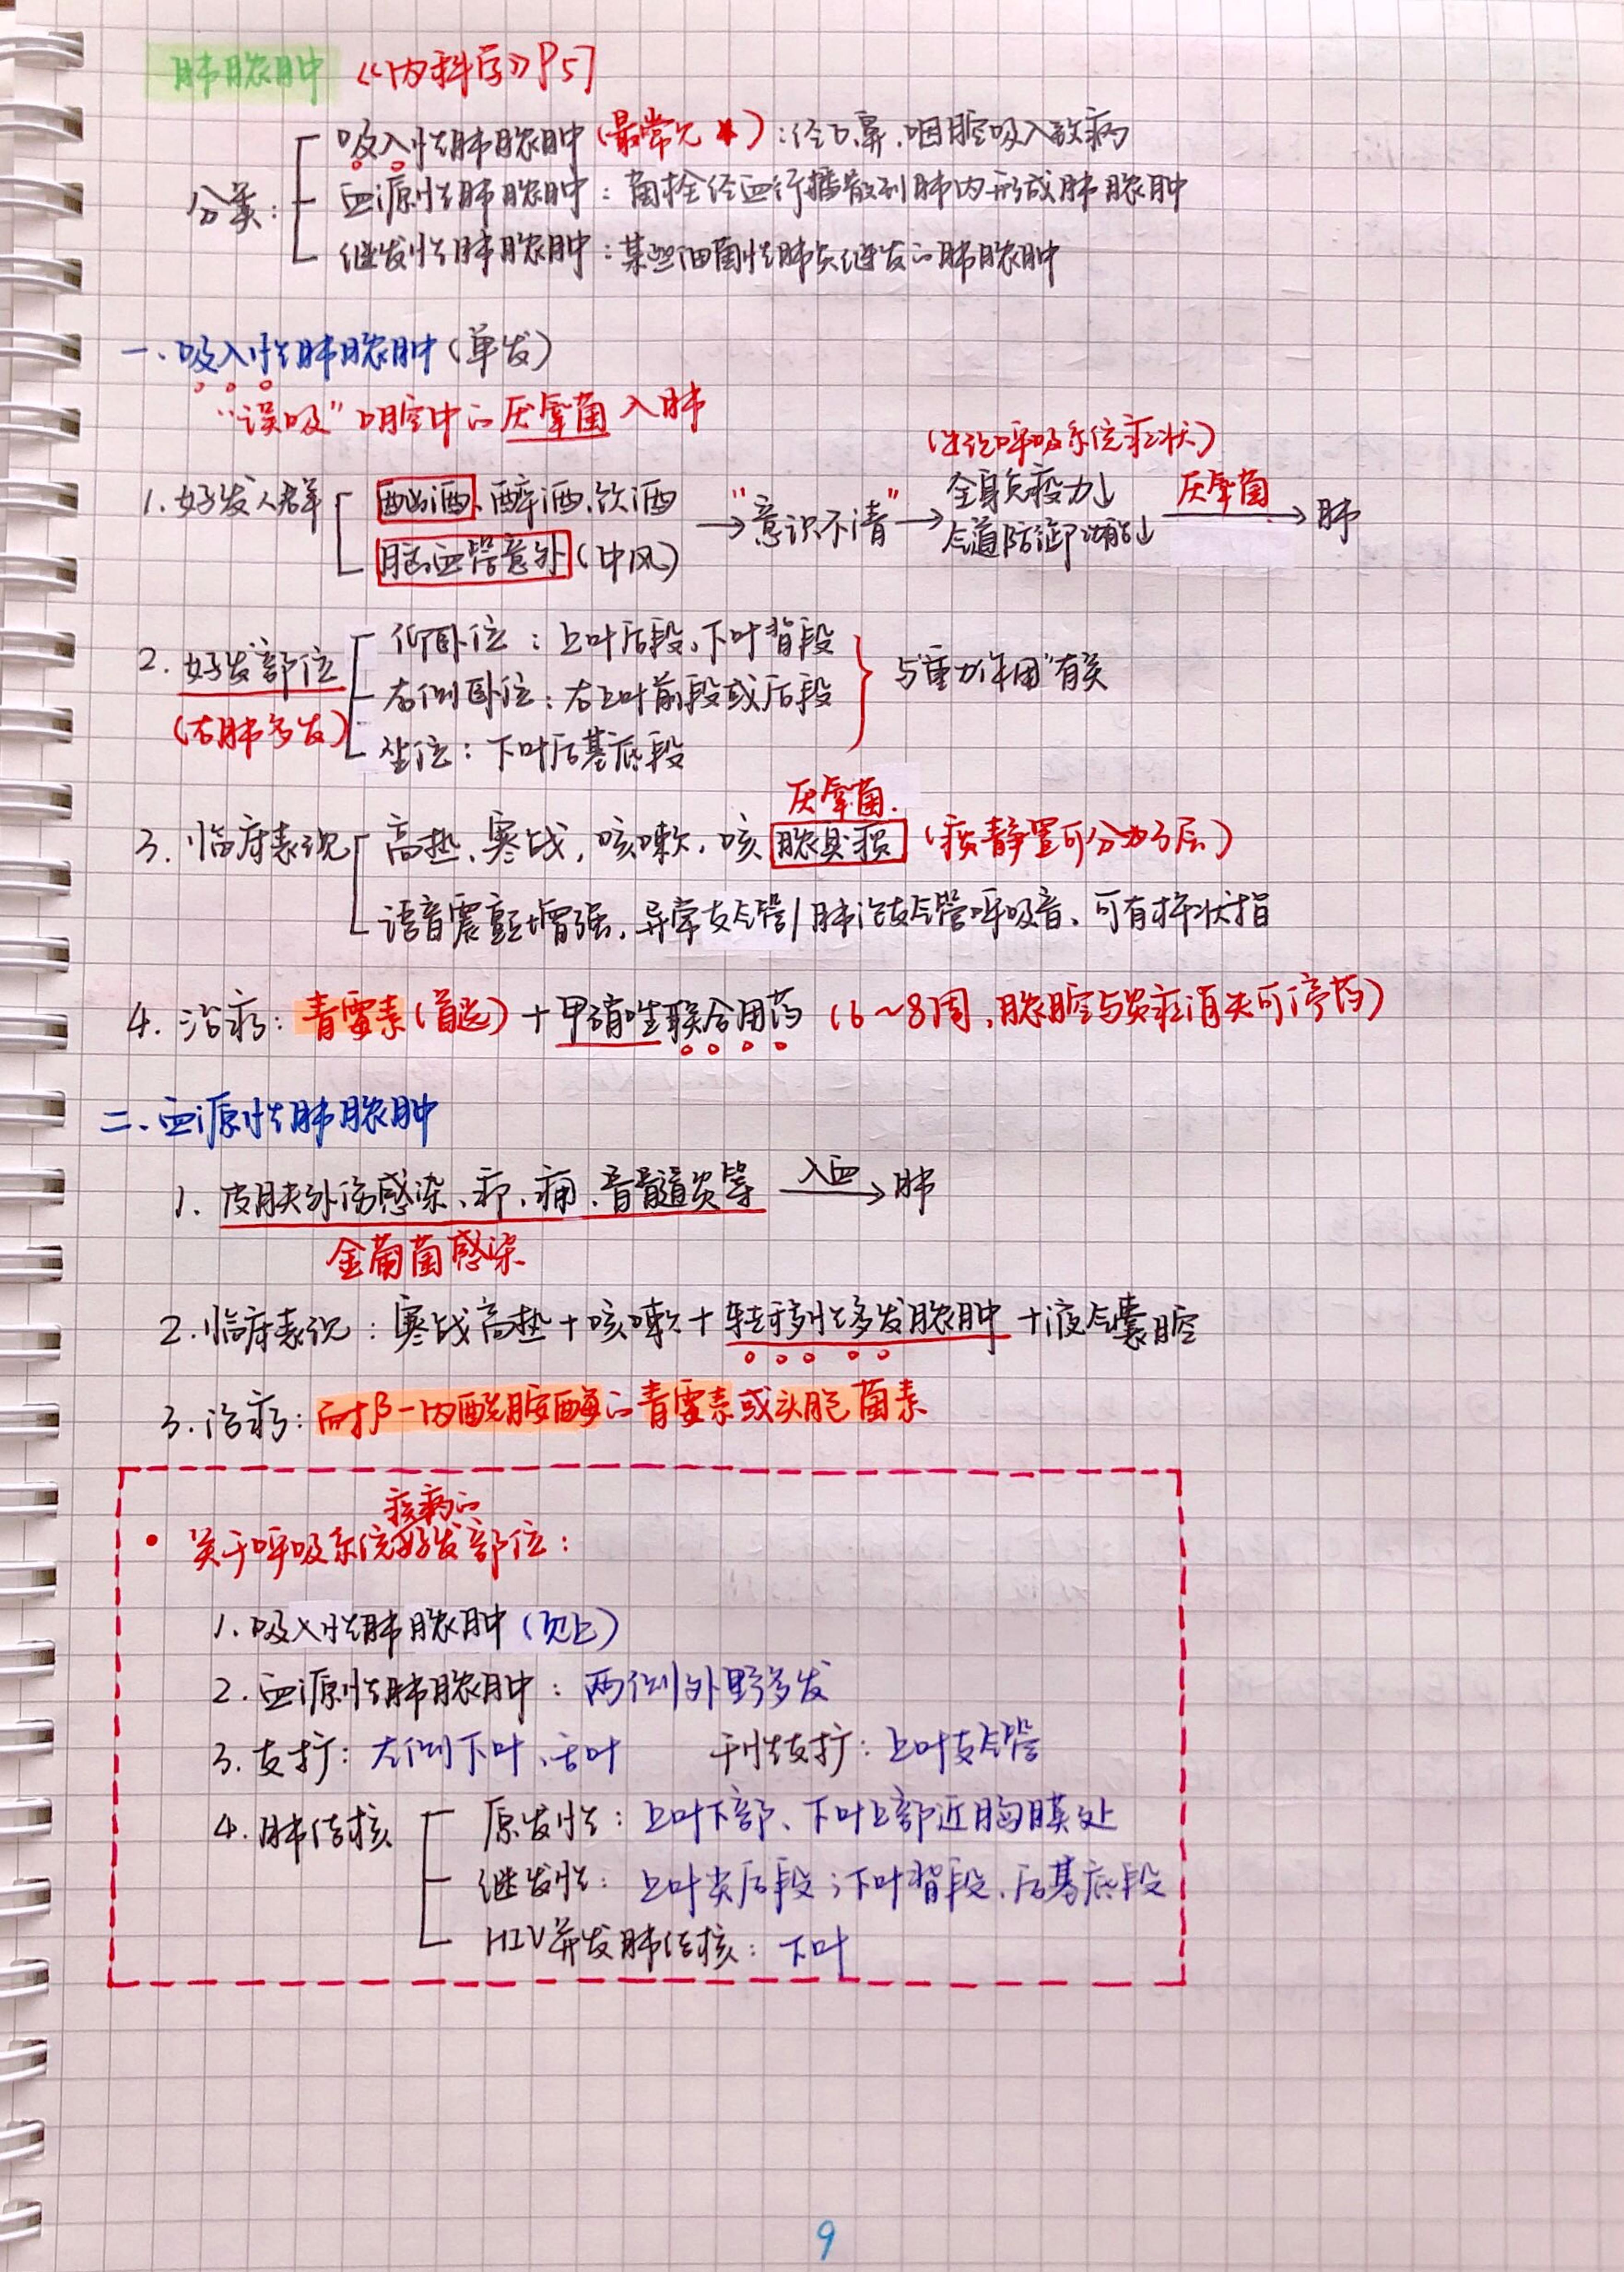 肺脓肿 《内科学》P57
分类:
吸入性肺脓肿(最常见★):经口、鼻、咽腔吸入致病
血源性肺脓肿:菌栓经血行播散到肺内形成肺脓肿
继发性肺脓肿:某些细菌性肺炎继发的肺脓肿
一.吸入性肺脓肿(单发)
"误吸"口腔中的厌氧菌入肺
1.好发人群
酗酒、醉酒、饮酒
脑血管意外(中风)
→"意识不清"→
呼吸系统症状)
全身免疫力↓
气道防御功能↓
厌氧菌→肺
2.好发部位
(右肺多发)
仰卧位:上叶后段、下叶背段
右侧卧位:右上叶前段或后段
坐位:下叶后基底段
与"重力作用"有关
3.临床表现
厌氧菌.
高热、寒战,咳嗽、咳脓臭痰(痰静置可分为3层)
语音震颤增强,异常支气管/肺泡支气管呼吸音、可有杵状指
4.治疗:青霉素(首选)+甲硝唑联合用药(6~8周,脓腔与炎症消失可停药)
二.血源性肺脓肿
1.皮肤外伤感染、疖、痈、骨髓炎等 入血→肺
金葡菌感染
2.临床表现:寒战高热+咳嗽+转移性多发脓肿+液气囊腔
3.治疗:耐β-内酰胺酶的青霉素或头孢菌素
•关于呼吸系统疾病的好发部位:
1.吸入性肺脓肿(见上)
2.血源性肺脓肿:两侧外野多发
3.支扩:左侧下叶、舌叶 干性支扩:上叶支气管
4.肺结核
原发性:上叶下部、下叶上部近胸膜处
继发性:上叶尖后段;下叶背段、后基底段
HIV并发肺结核:下叶
9